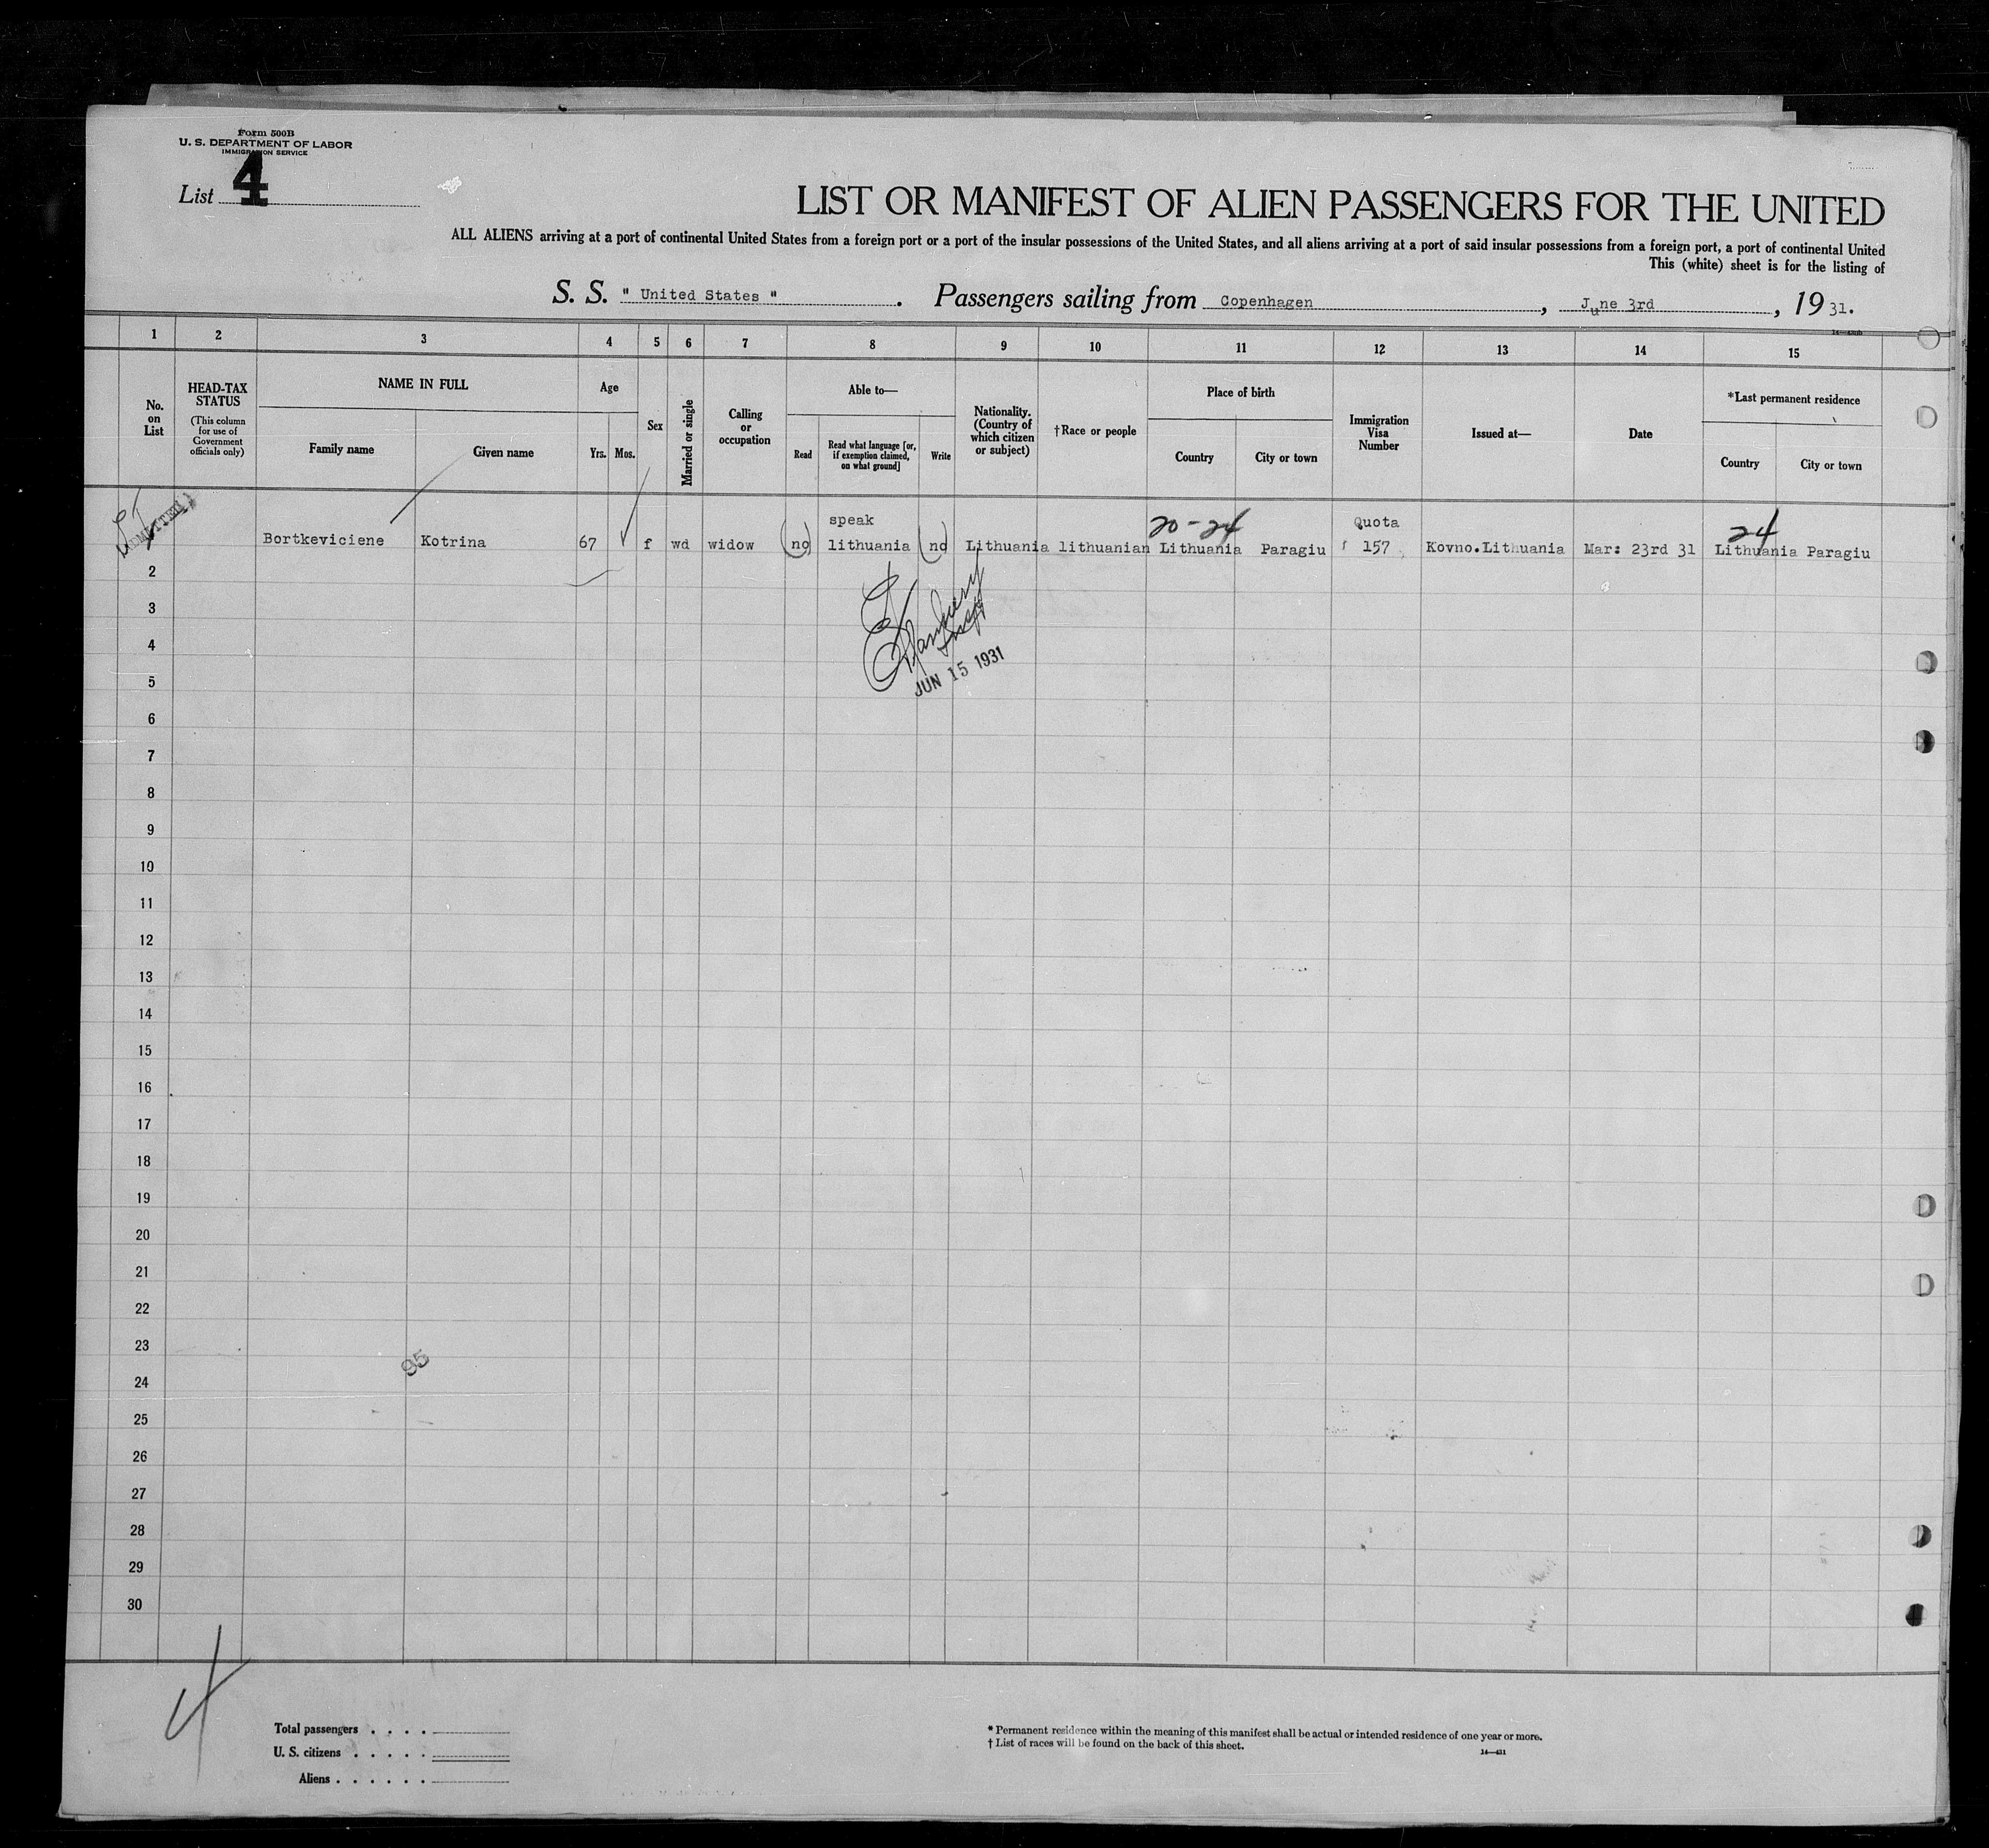 Form 500B
U. S. DEPARTMENT OF LABOR
IMMIGRATION SERVICE
List 4
LIST OR MANIFEST OF ALIEN PASSENGERS FOR THE UNITED
ALL ALIENS arriving at a port of continental United States from a foreign port or a port of the insular possessions of the United States, and all aliens arriving at a port of said insular possessions from a foreign port, a port of continental United
This (white) sheet is for the listing of
S. S. " United States " . Passengers sailing from Copenhagen , June 3rd , 19 31.
1 2 3 4 5 6 7 8 9 10 11 12 13 14 15
No. on List
HEAD-TAX STATUS
(This column for use of Government officials only)
NAME IN FULL
Family name
Given name
Age
Yrs. Mos.
Sex
Married or single
Calling or occupation
Able to—
Read
Read what language [or, if exemption claimed, on what ground]
Write
Nationality. (Country of which citizen or subject)
†Race or people
Place of birth
Country
City or town
Immigration Visa Number
Issued at—
Date
*Last permanent residence
Country
City or town
ADMITTED
speak
20-24
Quota
24
Bortkeviciene Kotrina 67 f wd widow no lithuania no Lithuania lithuanian Lithuania Paragiu 157 Kovno.Lithuania Mar: 23rd 31 Lithuania Paragiu
2
3
4
JUN 15 1931
5
6
7
8
9
10
11
12
13
14
15
16
17
18
19
20
21
22
23
95
24
25
26
27
28
29
30
4
Total passengers . . . .
U. S. citizens . . . . .
Aliens . . . . . .
* Permanent residence within the meaning of this manifest shall be actual or intended residence of one year or more.
† List of races will be found on the back of this sheet.
14—431